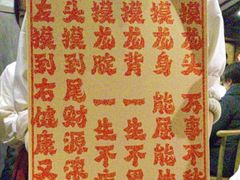 摸龙头 万事不愁
摸龙身 能屈能
摸龙背 一生不
摸龙腚 一生不
头摸到尾财源滚
左摸到右健康又